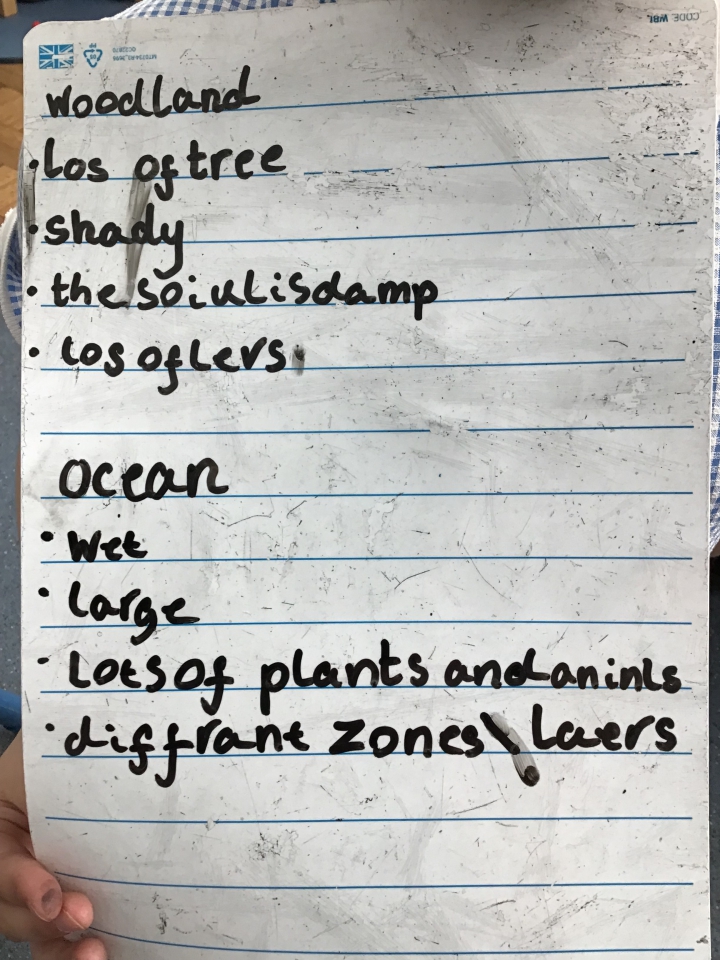 CODE WBL
MTST34-R3_3694
OC22870
woodland
• Los of tree
• shady
• the soiulis damp
• los of Levs
ocean
• wet
• large
• Lots of plants and aninls
• diffrant zones\ Laers